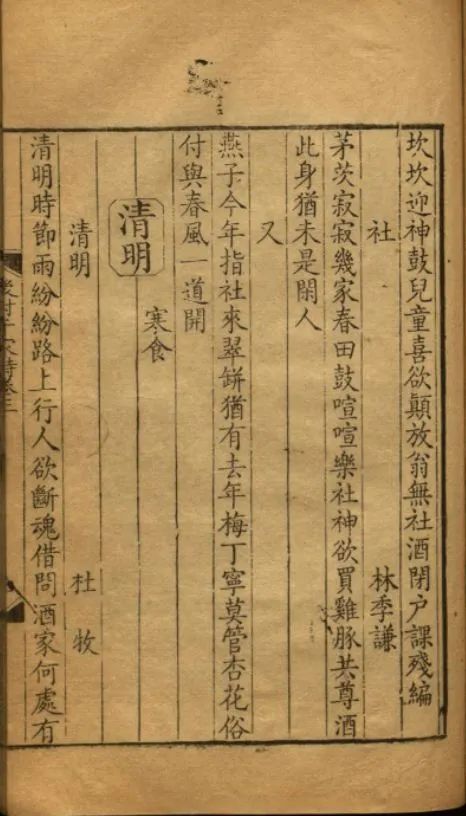 坎坎迎神鼓兒童喜欲顛放翁無社酒閉户課殘編
社 林季謙
茅茨寂寂幾家春田鼓喧喧樂社神欲買雞豚共尊酒
此身猶未是閑人
又
燕子今年指社來翠缾猶有去年梅丁寧莫管杏花俗
付與春風一道開
清明 寒食
清明 杜牧
清明時節雨紛紛路上行人欲斷魂借問酒家何處有
後村千家詩卷三